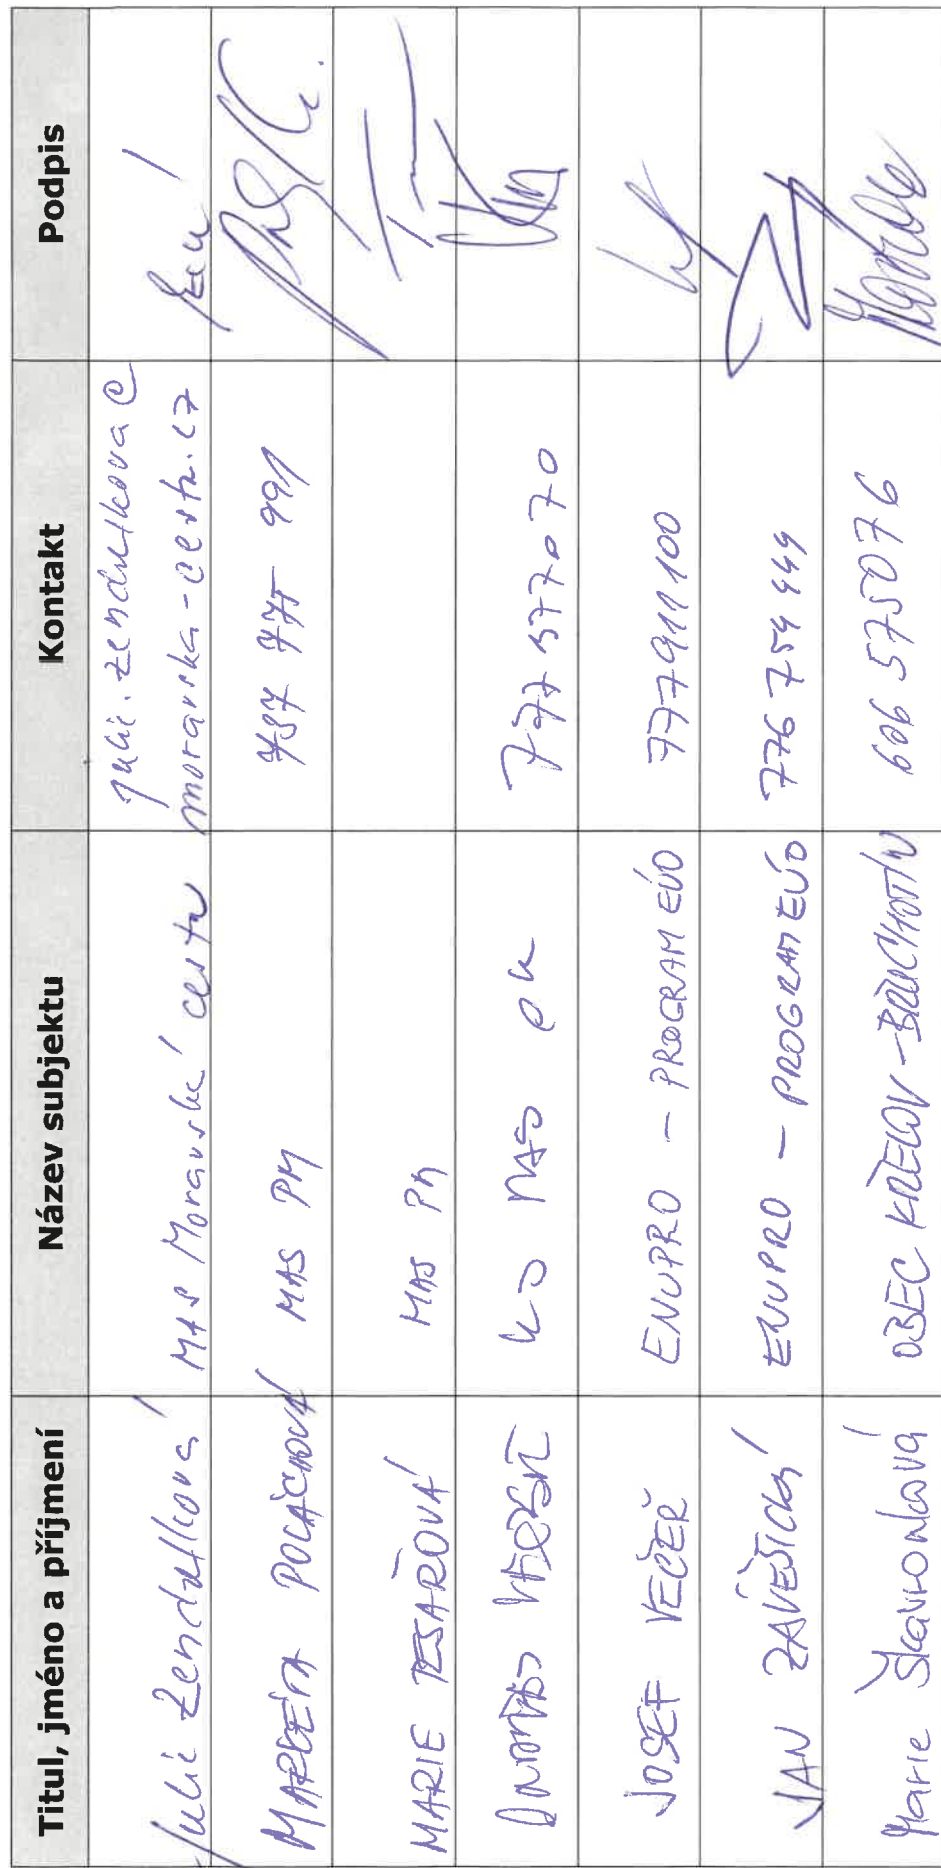 Titul, jméno a příjmení Název subjektu Kontakt Podpis
Julie Zendulková MAS Moravská cesta julie.zendulkova@
moravska-cesta.cz
MARKÉTA POLÁCHOVÁ MAS PM 737 775 991
MARIE TESAŘOVÁ MAS PM
KS MAS OK 777 577 070
JOSEF VEČEŘ ENVIPRO – PROGRAM EVO 777 911 100
JAN ZÁVĚŠICKÝ ENVIPRO – PROGRAM EVO 776 754 449
Marie Škavronková OBEC KŘELOV – BŘUCHOTÍN 606 575 076